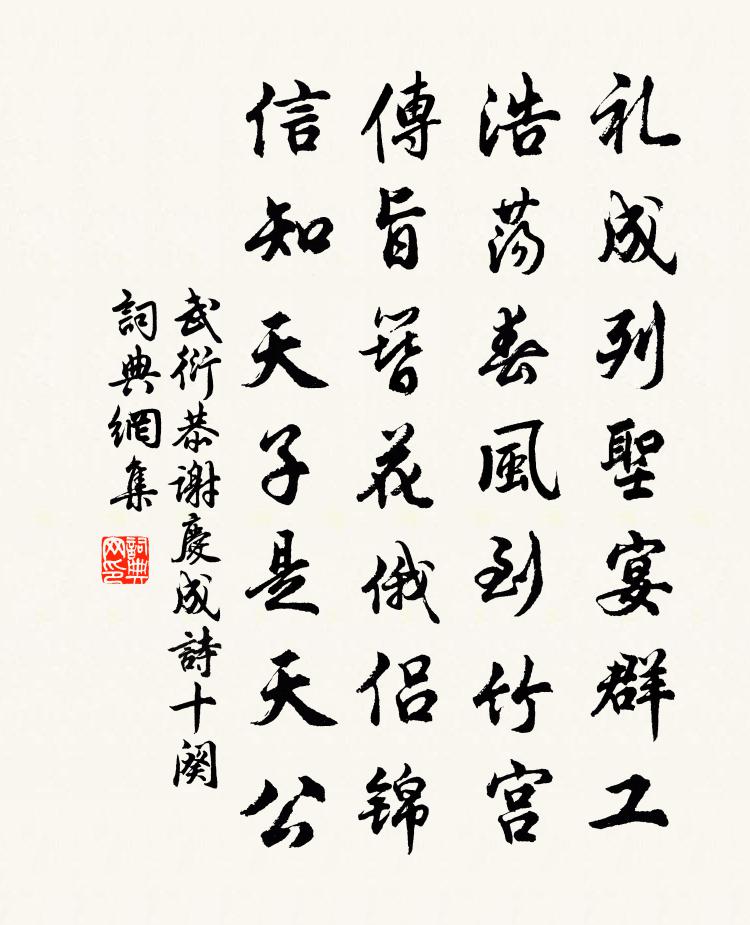 礼成列聖宴群工
浩荡春風到竹宫
傳旨簪花俄侣锦
信知天子是天公
武衍恭谢慶成詩十阕
詞典網集
詞典网印